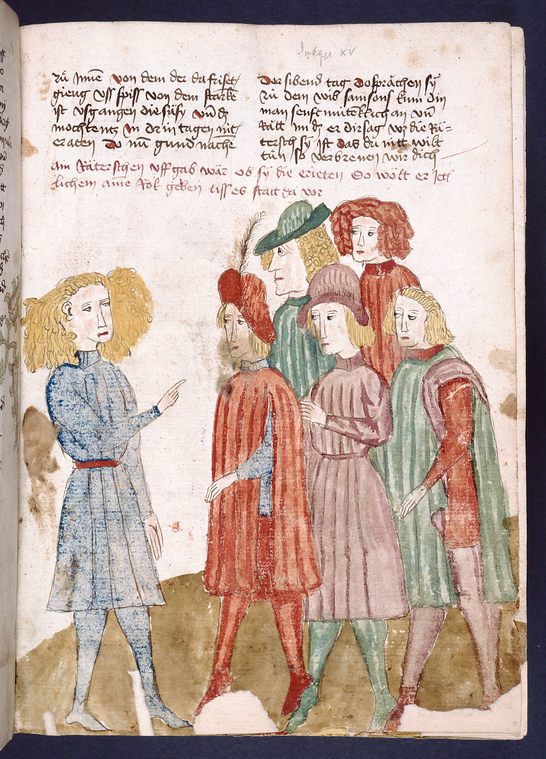 Judges XV
zů Jnnē von dem der da friset
gieng vss spiss von dem starke
ist vsgangen die süsy vnd sy
mochtens in drin tagen nit
eraten Do nū gund nache
Der sibend tag Do sprachen sy
zů dem wib samsons kum din
man senftmütteklich an vn̄
Rätt im dz er dir sag wz die Rä=
tersch sy ist das du nitt wilt
tün so verbrenen wir dich
Ain Räterschen vff gab wär ob sy die erieten So wölt er Jett
lichem aine Rok geben Als es statt da vor